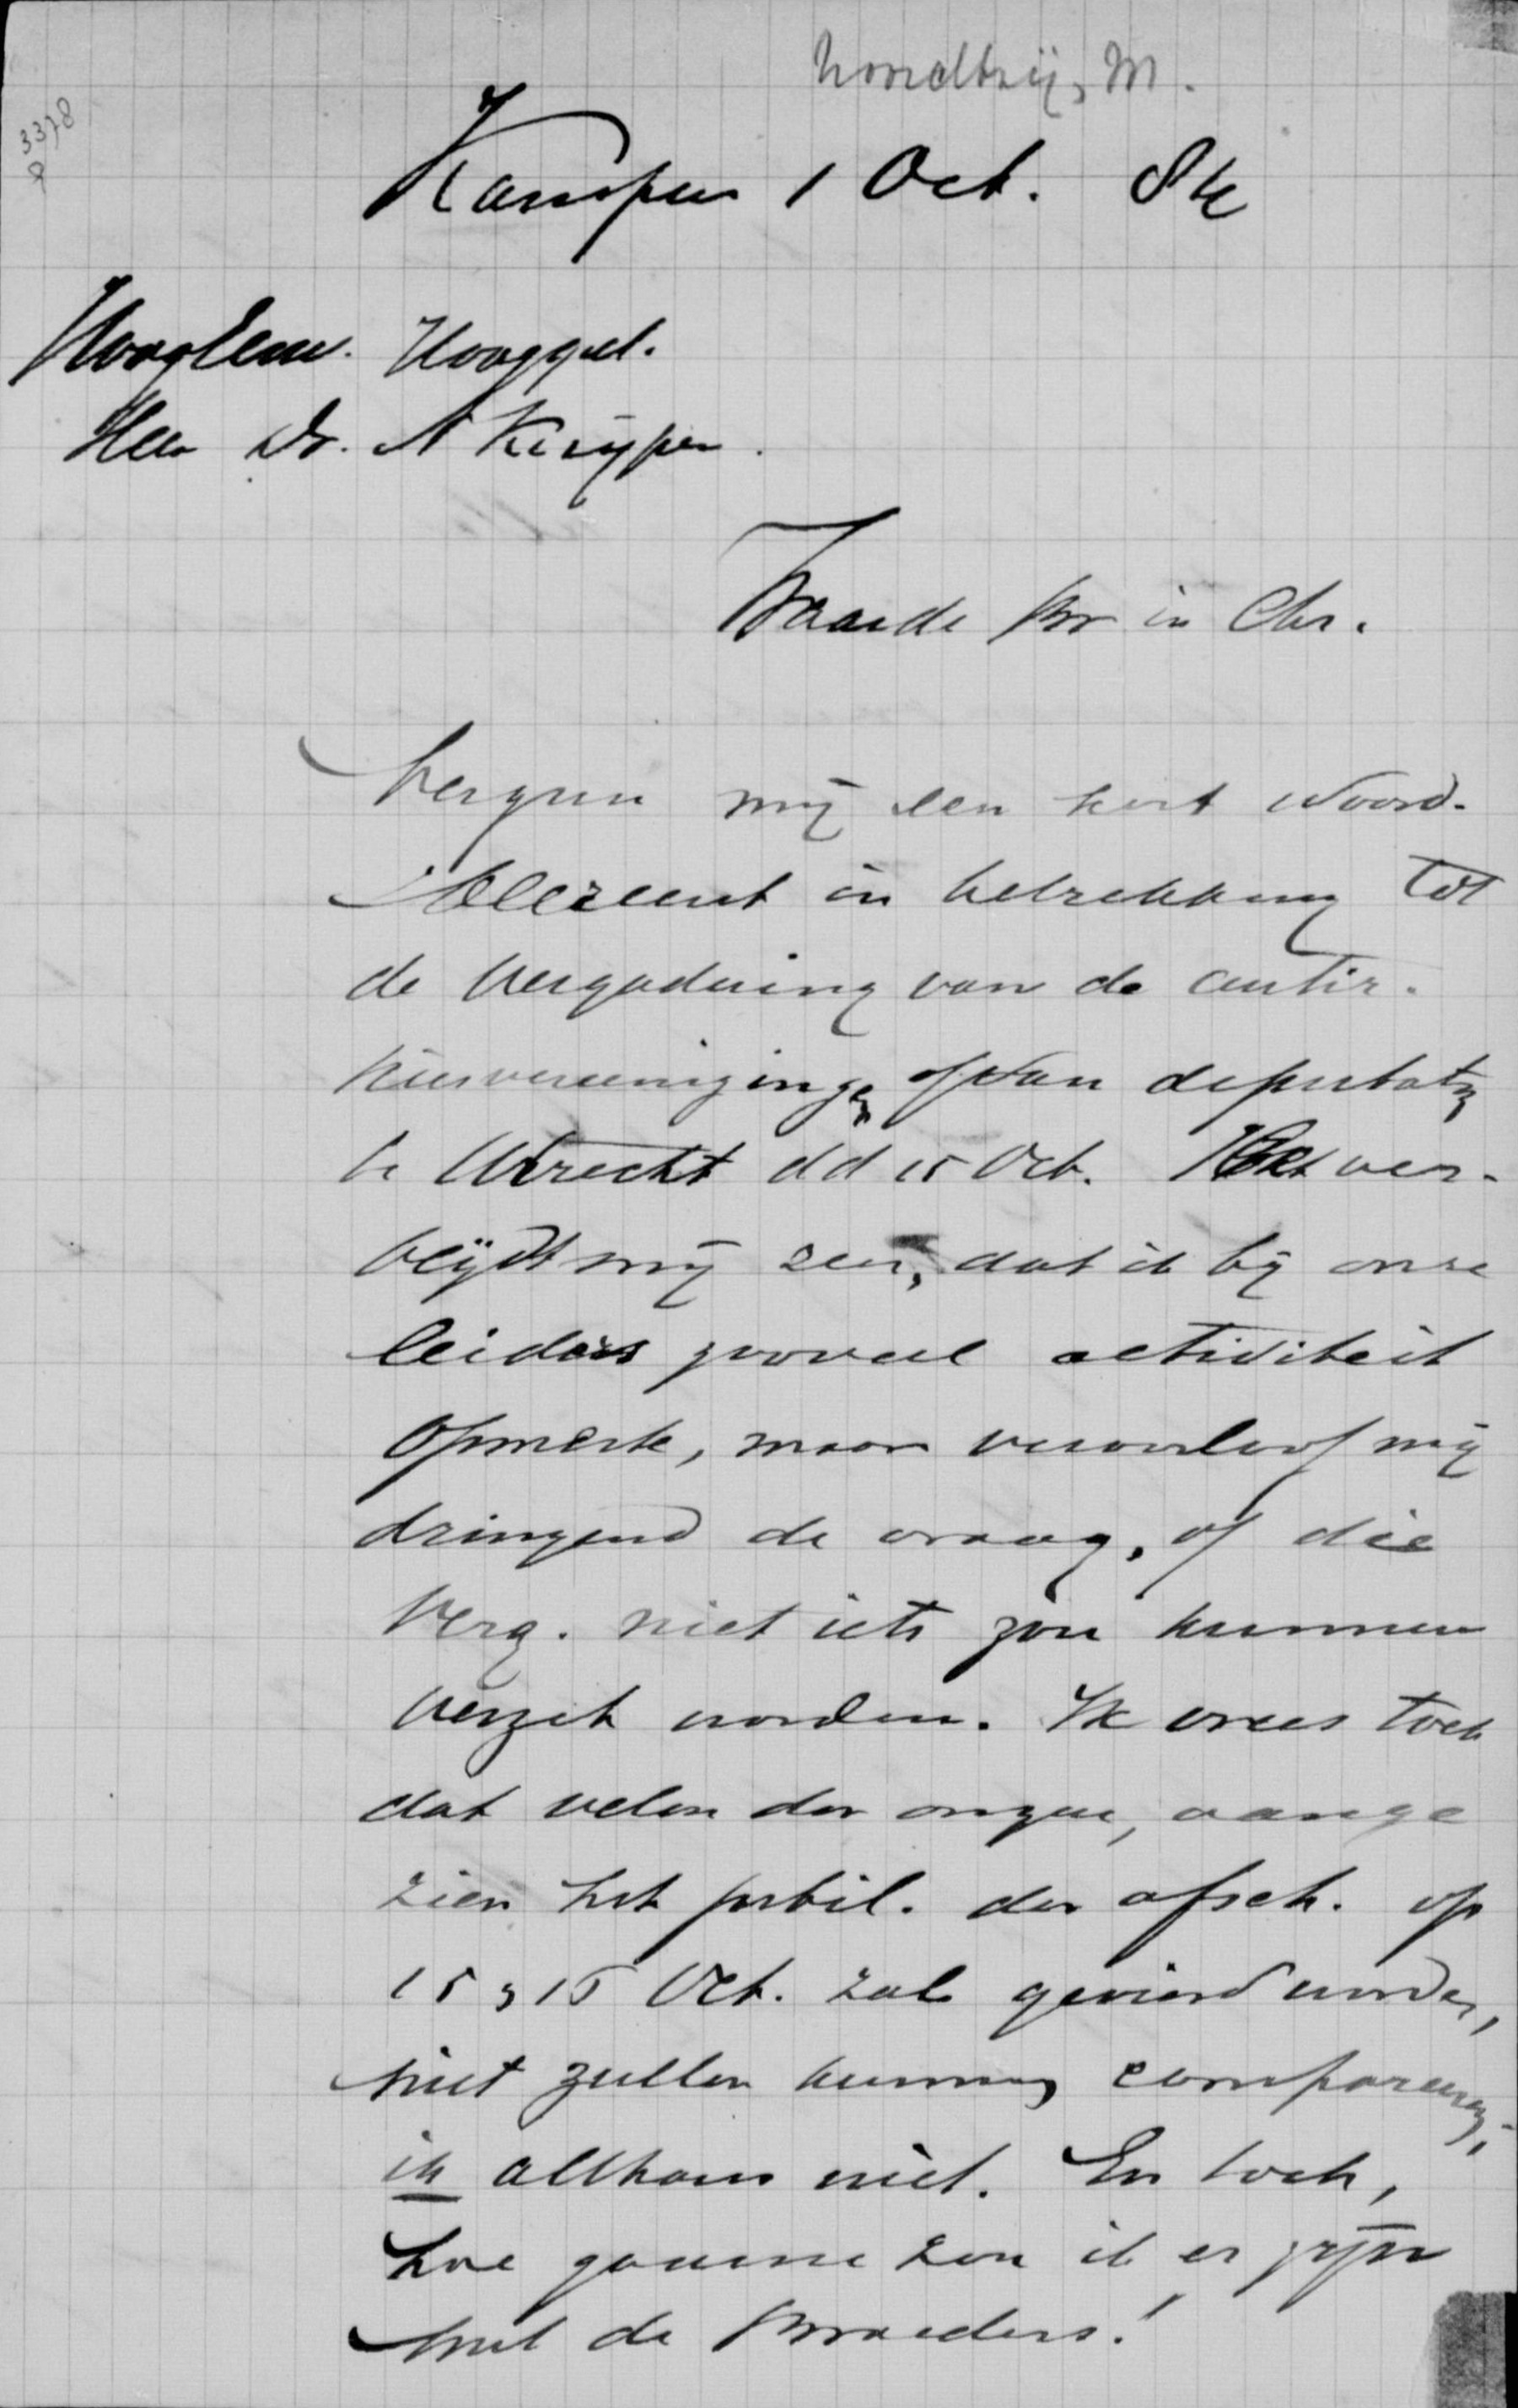 Noordtzij, M.
3378
Kampen 1 Oct. 84
HoogEerw. Hooggel.
Heer Dr. A Kuyper.
Waarde br in Chr.
Vergun mij een kort woord.
Allereerst in betrekking tot
de vergadering van de antir.
kiesvereenigingen of van deputaten
te Utrecht dd 15 Oct. Het ver-
blijdt mij zeer, dat ik bij onze
leiders zooveel activiteit
opmerk, maar veroorloof mij
dringend de vraag, of die
Verg. niet iets zou kunnen
verzet worden. Ik vrees toch
dat velen der onzen, aange
zien het jubil. der afsch. op
15 & 15 Oct. zal gevierd worden,
niet zullen kunnen compareeren;
ik althans niet. En toch,
hoe gaarne zou ik er zijn
met de broeders!